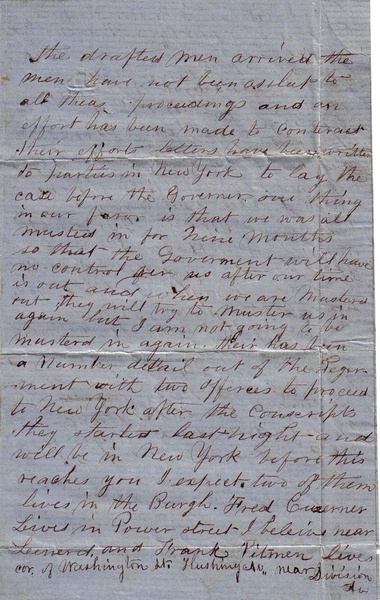 the drafted men arrived the
men have not been asleep to
all theas proceedings and an
effort has been made to Conteract
their efforts letters have been written
to parties in New York to lay the
case before the Governer. one thing
in our favor is that we was all
musterd in for Nine Months
so that the Goverment will have
no control over us after our time
is out and when we are Musterd
out they will try to Muster us in
again but I am not going to be
musterd in again. their has been
a Number detail out of the Reger-
ment with two Officers to proceed
to New York after the Conscripts
they started last night and
will be in New York before this
reaches you I expect two of them
lives in the Burgh. Fred
Lives in Power street I beleive near
and Frank Pitmen lives
cor. of Washington St Flushing Av., near Division
Av